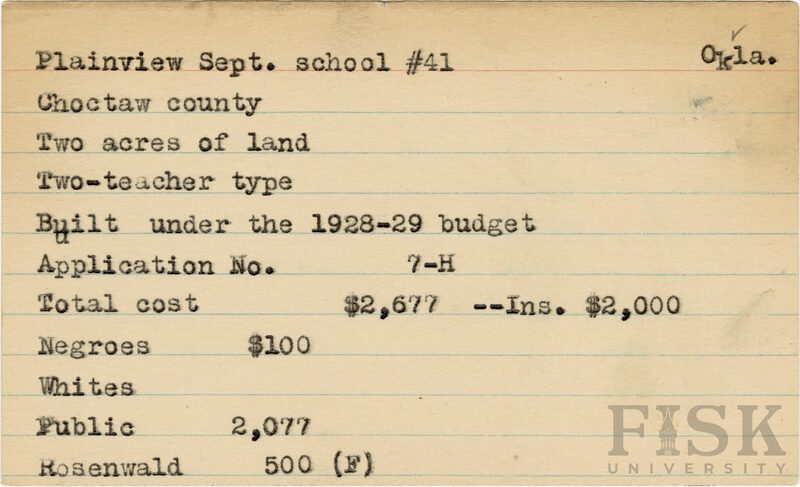 Plainview Sept. school #41 Okla.
Choctaw county
Two acres of land
Two-teacher type
Built under the 1928-29 budget
Application No. 7-H
Total cost $2,677 --Ins. $2,000
Negroes $100
Whites
Public 2,077
Rosenwald 500 (F)
FISK
UNIVERSITY